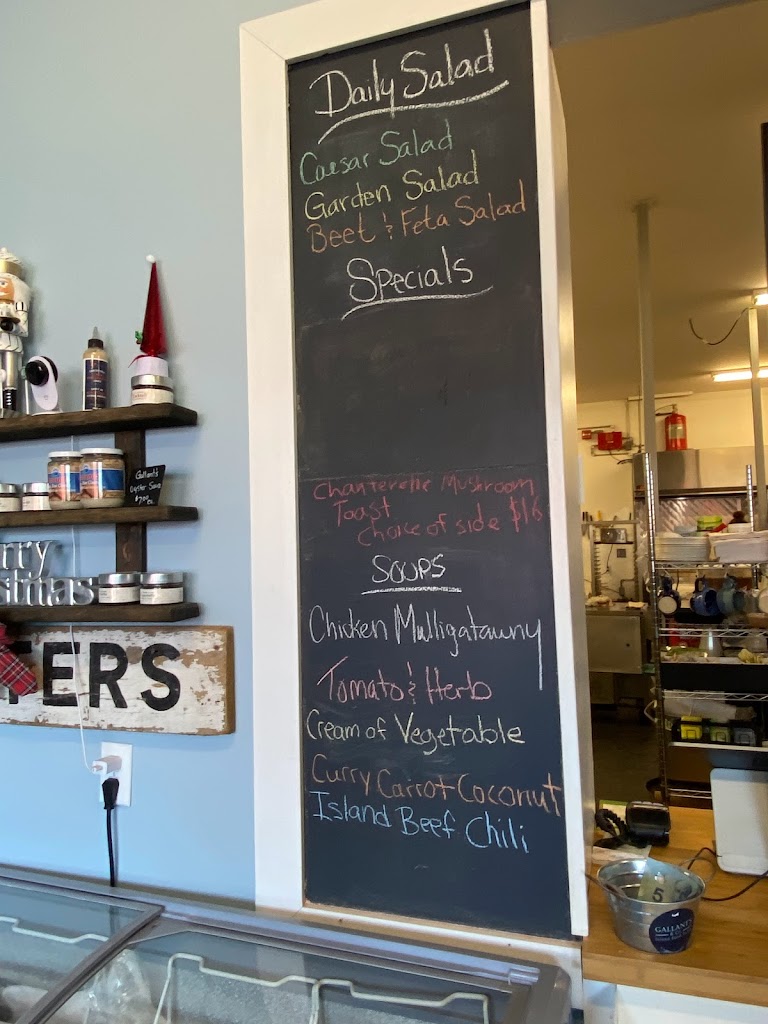 Daily Salad
Caesar Salad
Garden Salad
Beet & Feta Salad
Specials
Chanterelle Mushroom
Toast
Choice of side $16
Soups
Chicken Mulligatawny
Tomato & Herb
Cream of Vegetable
Curry Carrot Coconut
Island Beef Chili
Gallant's
Oyster Sauce
TERS
5
GALLANT'S